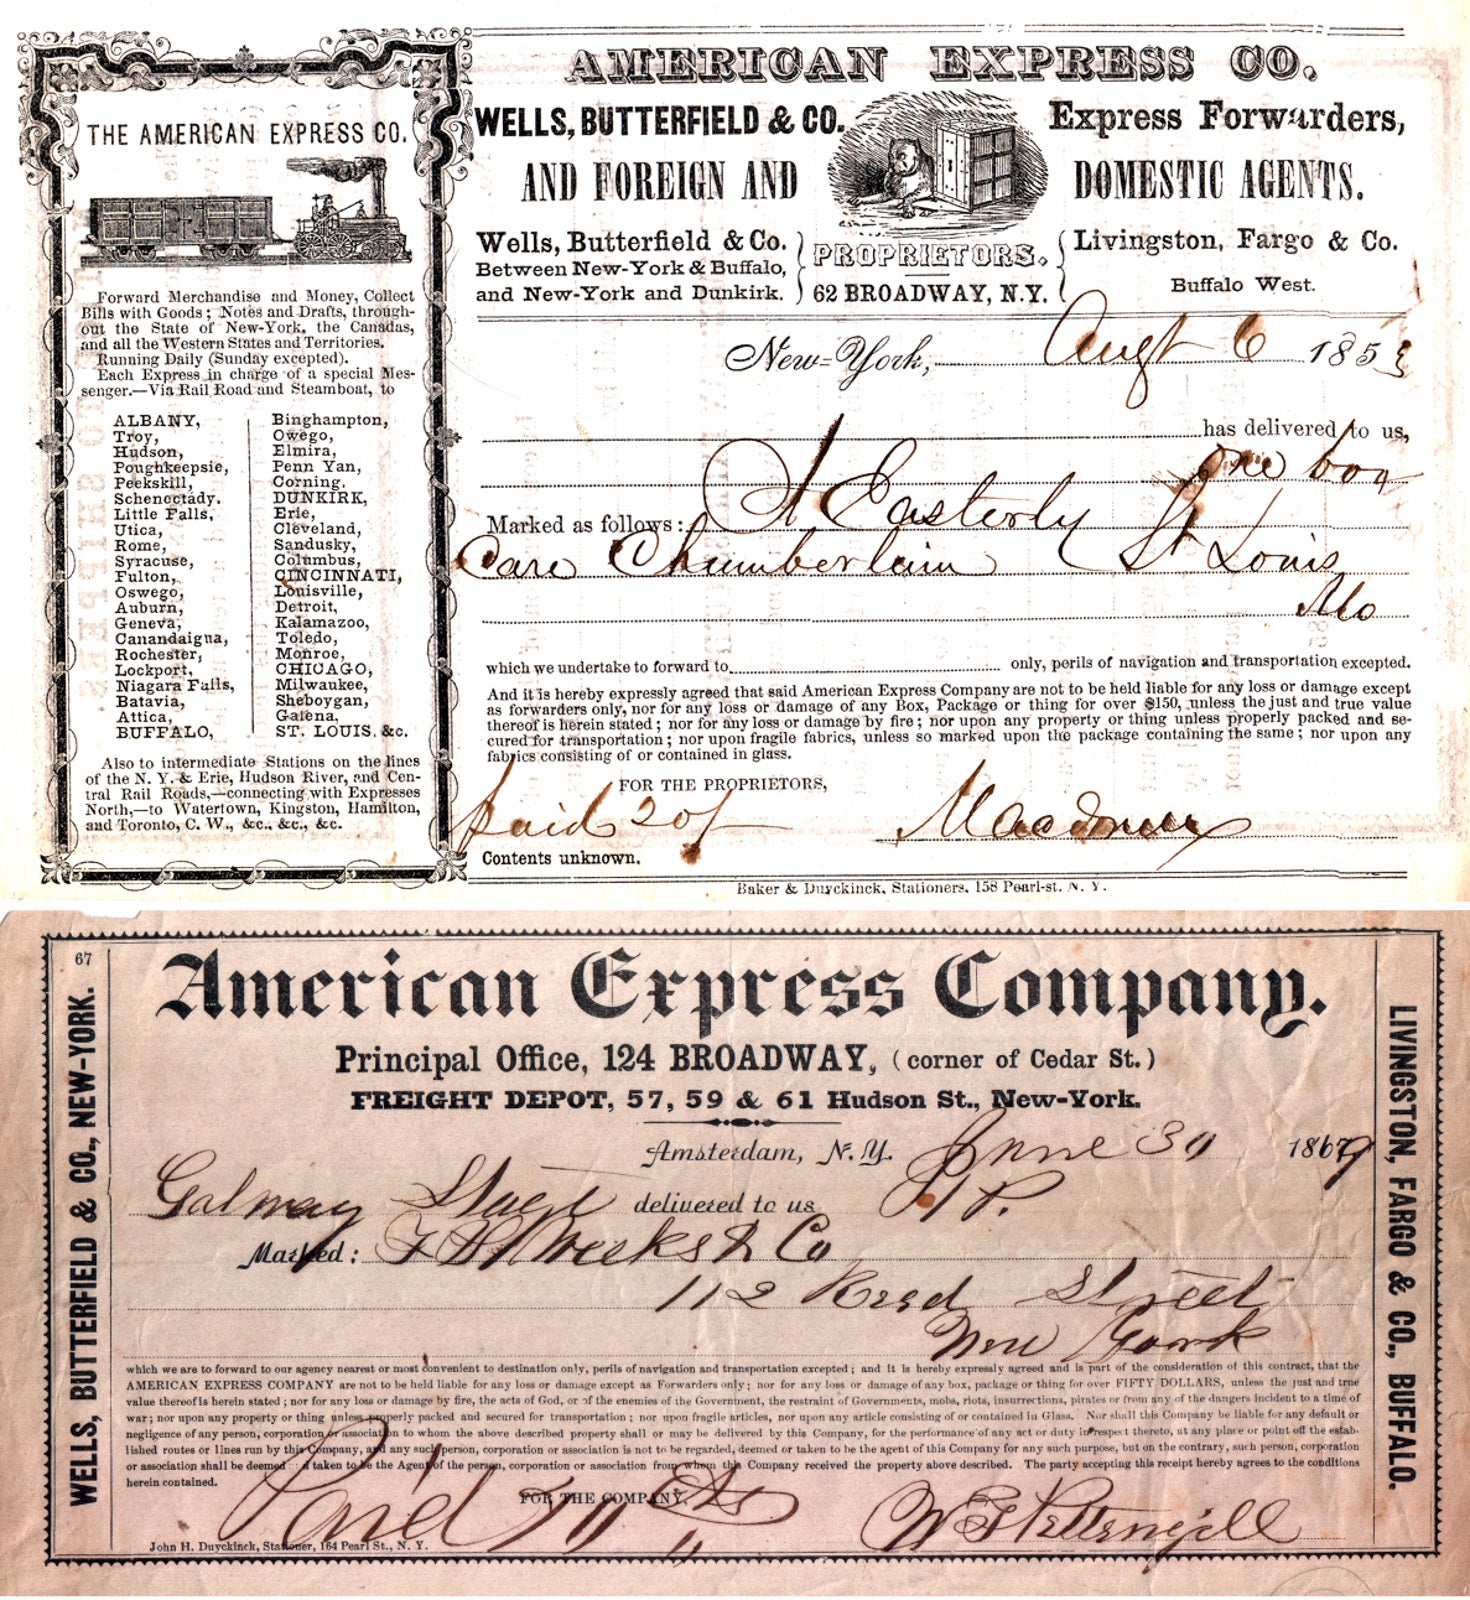 THE AMERICAN EXPRESS CO.
Forward Merchandise and Money, Collect
Bills with Goods; Notes and Drafts, through-
out the State of New-York, the Canadas,
and all the Western States and Territories.
Running Daily (Sunday excepted).
Each Express in charge of a special Mes-
senger.—Via Rail Road and Steamboat, to
ALBANY,
Troy,
Hudson,
Poughkeepsie,
Peekskill,
Schenectady.
Little Falls,
Utica,
Rome,
Syracuse,
Fulton,
Oswego,
Auburn,
Geneva,
Canandaigua,
Rochester,
Lockport,
Niagara Falls,
Batavia,
Attica,
BUFFALO,
Binghampton,
Owego,
Elmira,
Penn Yan,
Corning.
DUNKIRK,
Erie,
Cleveland,
Sandusky,
Columbus,
CINCINNATI,
Louisville,
Detroit,
Kalamazoo,
Toledo,
Monroe,
CHICAGO,
Milwaukee,
Sheboygan,
Galena,
ST. LOUIS, &c.
Also to intermediate Stations on the lines
of the N. Y. & Erie, Hudson River, and Cen-
tral Rail Roads,—connecting with Expresses
North,—to Watertown, Kingston, Hamilton,
and Toronto, C. W., &c., &c., &c.
AMERICAN EXPRESS CO.
WELLS, BUTTERFIELD & CO. Express Forwarders,
AND FOREIGN AND DOMESTIC AGENTS.
Wells, Butterfield & Co.
Between New-York & Buffalo,
and New-York and Dunkirk.
PROPRIETORS.
62 BROADWAY, N.Y.
Livingston, Fargo & Co.
Buffalo West.
New-York, Augt 6 1853
has delivered to us,
one box
Marked as follows: A Easterly
Care Chamberlain St Louis
Mo
which we undertake to forward to only, perils of navigation and transportation excepted.
And it is hereby expressly agreed that said American Express Company are not to be held liable for any loss or damage except
as forwarders only, nor for any loss or damage of any Box, Package or thing for over $150, unless the just and true value
thereof is herein stated; nor for any loss or damage by fire; nor upon any property or thing unless properly packed and se-
cured for transportation; nor upon fragile fabrics, unless so marked upon the package containing the same; nor upon any
fabrics consisting of or contained in glass.
FOR THE PROPRIETORS,
paid 20/
Contents unknown.
Baker & Duyckinck, Stationers, 158 Pearl-st. N. Y.
67
WELLS, BUTTERFIELD & CO., NEW-YORK.
American Express Company.
Principal Office, 124 BROADWAY, (corner of Cedar St.)
FREIGHT DEPOT, 57, 59 & 61 Hudson St., New-York.
Amsterdam, N. Y. June 30 1867
Galway delivered to us 1 P.
Marked: Weeks & Co
112 Read Street
New York
which we are to forward to our agency nearest or most convenient to destination only, perils of navigation and transportation excepted; and it is hereby expressly agreed and is part of the consideration of this contract, that the
AMERICAN EXPRESS COMPANY are not to be held liable for any loss or damage except as Forwarders only; nor for any loss or damage of any box, package or thing for over FIFTY DOLLARS, unless the just and true
value thereof is herein stated; nor for any loss or damage by fire, the acts of God, or of the enemies of the Government, the restraint of Governments, mobs, riots, insurrections, pirates or from any of the dangers incident to a time of
war; nor upon any property or thing unless properly packed and secured for transportation; nor upon fragile articles, nor upon any article consisting of or contained in Glass. Nor shall this Company be liable for any default or
negligence of any person, corporation or association to whom the above described property shall or may be delivered by this Company, for the performance of any act or duty in respect thereto, at any place or point off the estab-
lished routes or lines run by this Company, and any such person, corporation or association is not to be regarded, deemed or taken to be the agent of this Company for any such purpose, but on the contrary, such person, corporation
or association shall be deemed and taken to be the Agent of the person, corporation or association from whom this Company received the property above described. The party accepting this receipt hereby agrees to the conditions
herein contained.
FOR THE COMPANY,
Paid 70 Cts
W F Pettengill
John H. Duyckinck, Stationer, 164 Pearl St., N. Y.
LIVINGSTON, FARGO & CO., BUFFALO.